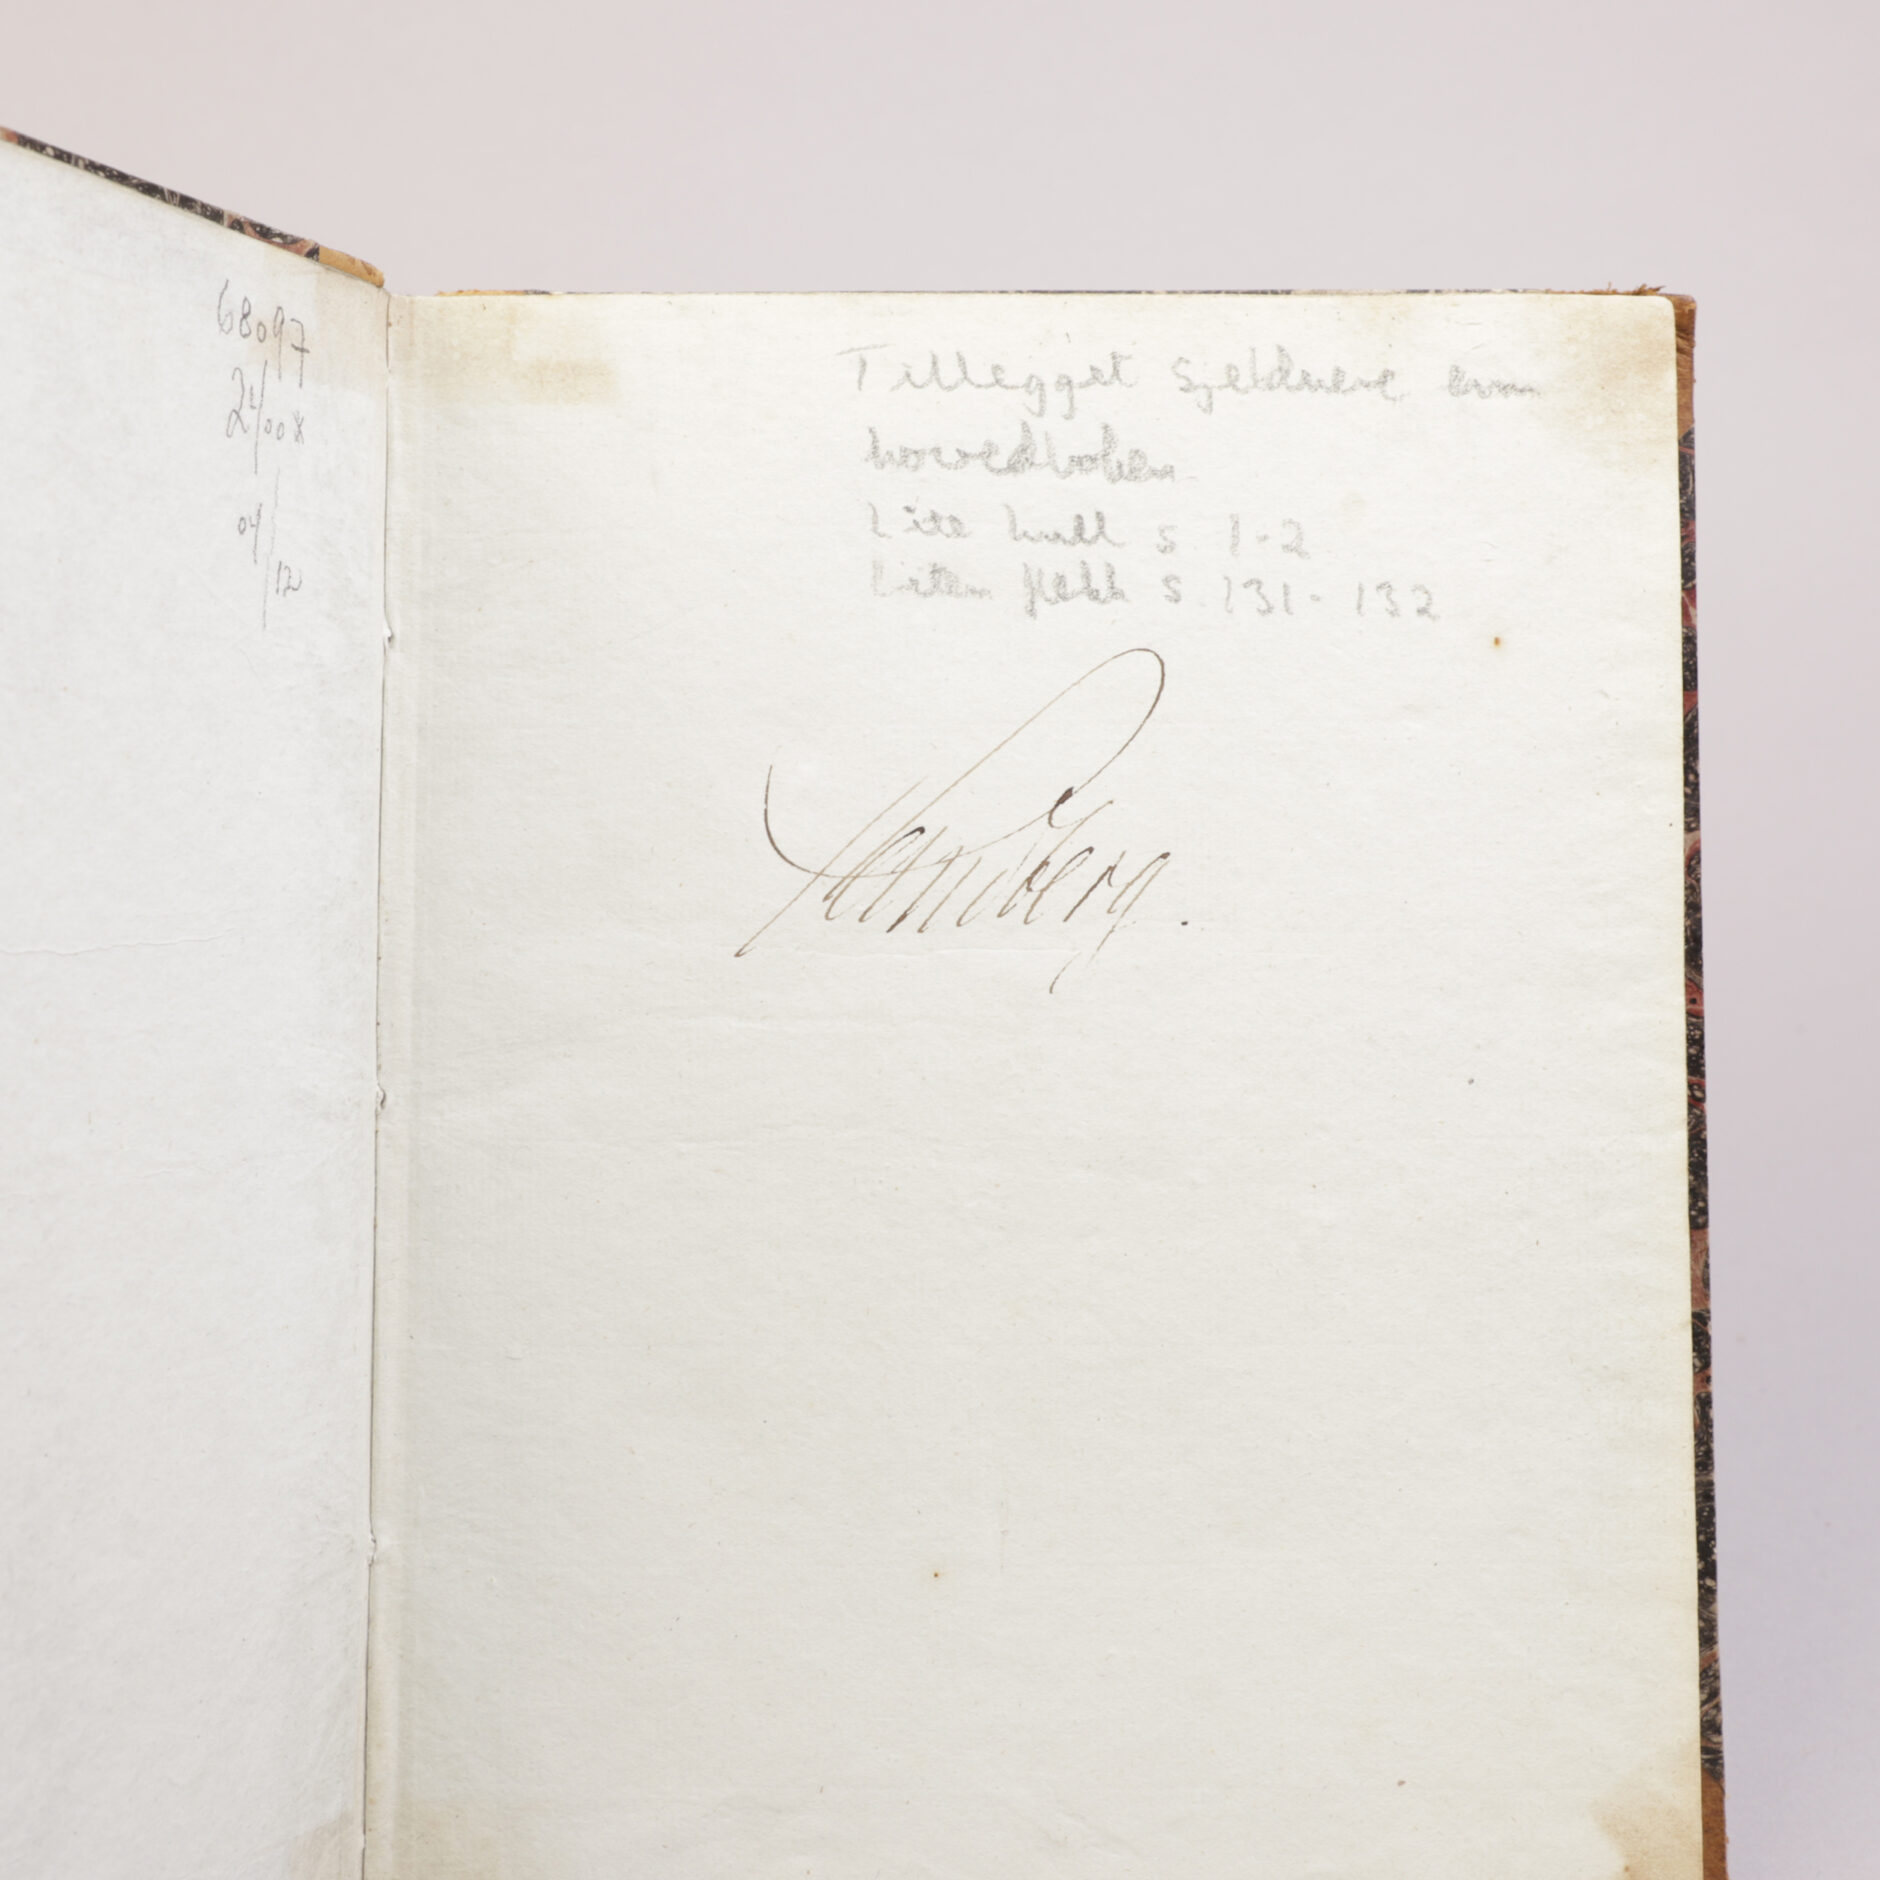 68097
04/12
Tillegget sjeldnere enn
hovedboken
Lite hull s. 1-2
Liten flekk s. 131-132